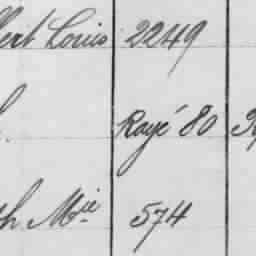 bert Louis 2249
Rayé 80
th Mie 574